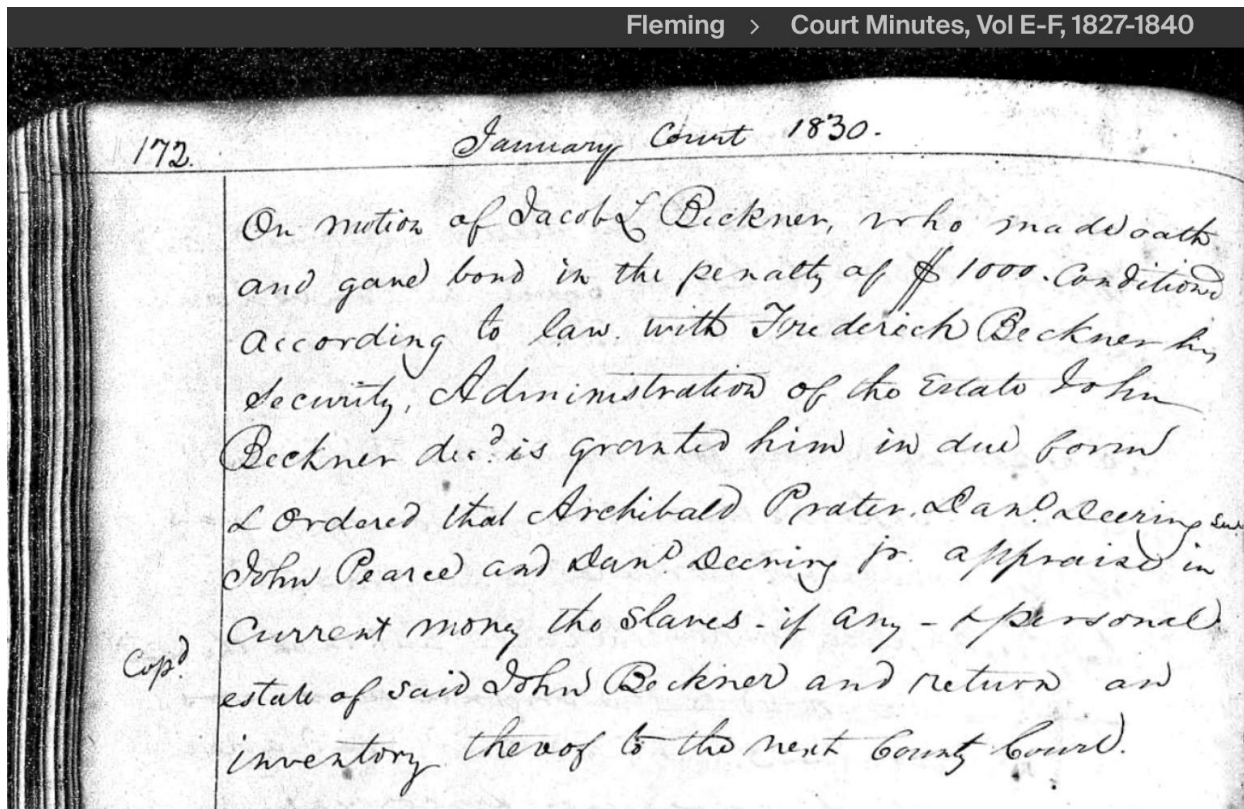 Fleming > Court Minutes, Vol E-F, 1827-1840
172. January Court 1830.
On motion of Jacob L Beckner, who made oath
and gave bond in the penalty of $1000. Conditiond
according to law. with Frederick Beckner his
Security, Administration of the Estate John
Beckner decd. is granted him in due form
& Ordered that Archibald Prater. Danl. Deering Senr
John Pearce and Danl. Deering jr. appraise in
Current money the slaves - if any - & personal
Copd. estate of said John Beckner and return an
inventory thereof to the next County Court.